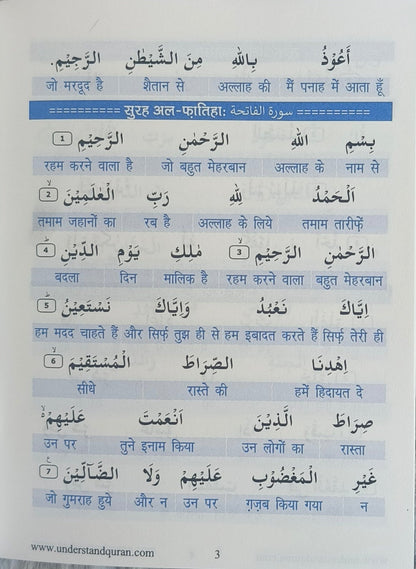 أَعُوْذُ بِاللهِ مِنَ الشَّيْطٰنِ الرَّجِيْمِ.
मैं पनाह में आता हूँ अल्लाह की शैतान से जो मरदूद है
सुरह अल-फ़ातिहा: سورة الفاتحة
بِسْمِ اللهِ الرَّحْمٰنِ الرَّحِيْمِ 1
नाम से अल्लाह के जो बहुत मेहरबान रहम करने वाला है
اَلْحَمْدُ لِلهِ رَبِّ الْعٰلَمِيْنَ 2
तमाम तारीफ़ें अल्लाह के लिये रब है तमाम जहानों का
الرَّحْمٰنِ الرَّحِيْمِ 3 مٰلِكِ يَوْمِ الدِّيْنِ 4
बहुत मेहरबान रहम करने वाला मालिक है दिन बदला
اِيَّاكَ نَعْبُدُ وَاِيَّاكَ نَسْتَعِيْنُ 5
सिर्फ़ तेरी ही हम इबादत करते हैं और सिर्फ़ तुझ ही से हम मदद चाहते हैं
اِهْدِنَا الصِّرَاطَ الْمُسْتَقِيْمَ 6
हमें हिदायत दे रास्ते की सीधे
صِرَاطَ الَّذِيْنَ اَنْعَمْتَ عَلَيْهِمْ
रास्ता उन लोगों का तुने इनाम किया उन पर
غَيْرِ الْمَغْضُوْبِ عَلَيْهِمْ وَلَا الضَّآلِّيْنَ 7
न ग़ज़ब किया गया उन पर और न जो गुमराह हुये
www.understandquran.com 3